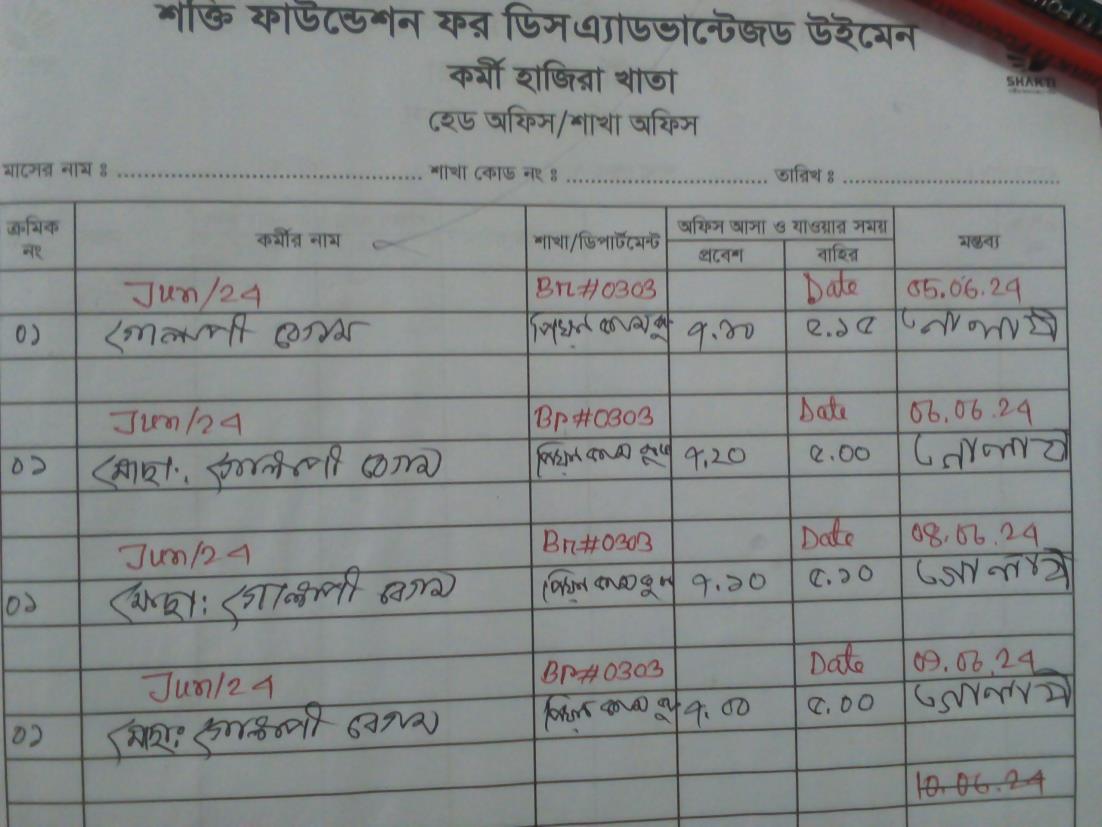 শক্তি ফাউন্ডেশন ফর ডিসএ্যাডভান্টেজড উইমেন
কর্মী হাজিরা খাতা
SHAKTI
হেড অফিস/শাখা অফিস
মাসের নাম ঃ .......... শাখা কোড নং ঃ .......... তারিখ ঃ ..........
ক্রমিক নং কর্মীর নাম শাখা/ডিপার্টমেন্ট অফিস আসা ও যাওয়ার সময় মন্তব্য
প্রবেশ বাহির
Jun/24 Br#0303 Date 05.06.24
০১ গোলাপী বেগম পিয়ন কাম ৭.২০ ৫.১৫ গোলাপী
Jun/24 Br#0303 Date 06.06.24
০১ মোছা: গোলাপী বেগম পিয়ন কাম কুক ৭.২০ ৫.00 গোলাপী
Jun/24 Br#0303 Date 08.06.24
০১ মোছা: গোলাপী বেগম পিয়ন কাম কুক ৭.১০ ৫.১০ গোলাপী
Jun/24 Br#0303 Date 09.06.24
০১ মোছা: গোলাপী বেগম পিয়ন কাম ৭.00 ৫.00 গোলাপী
10.06.24